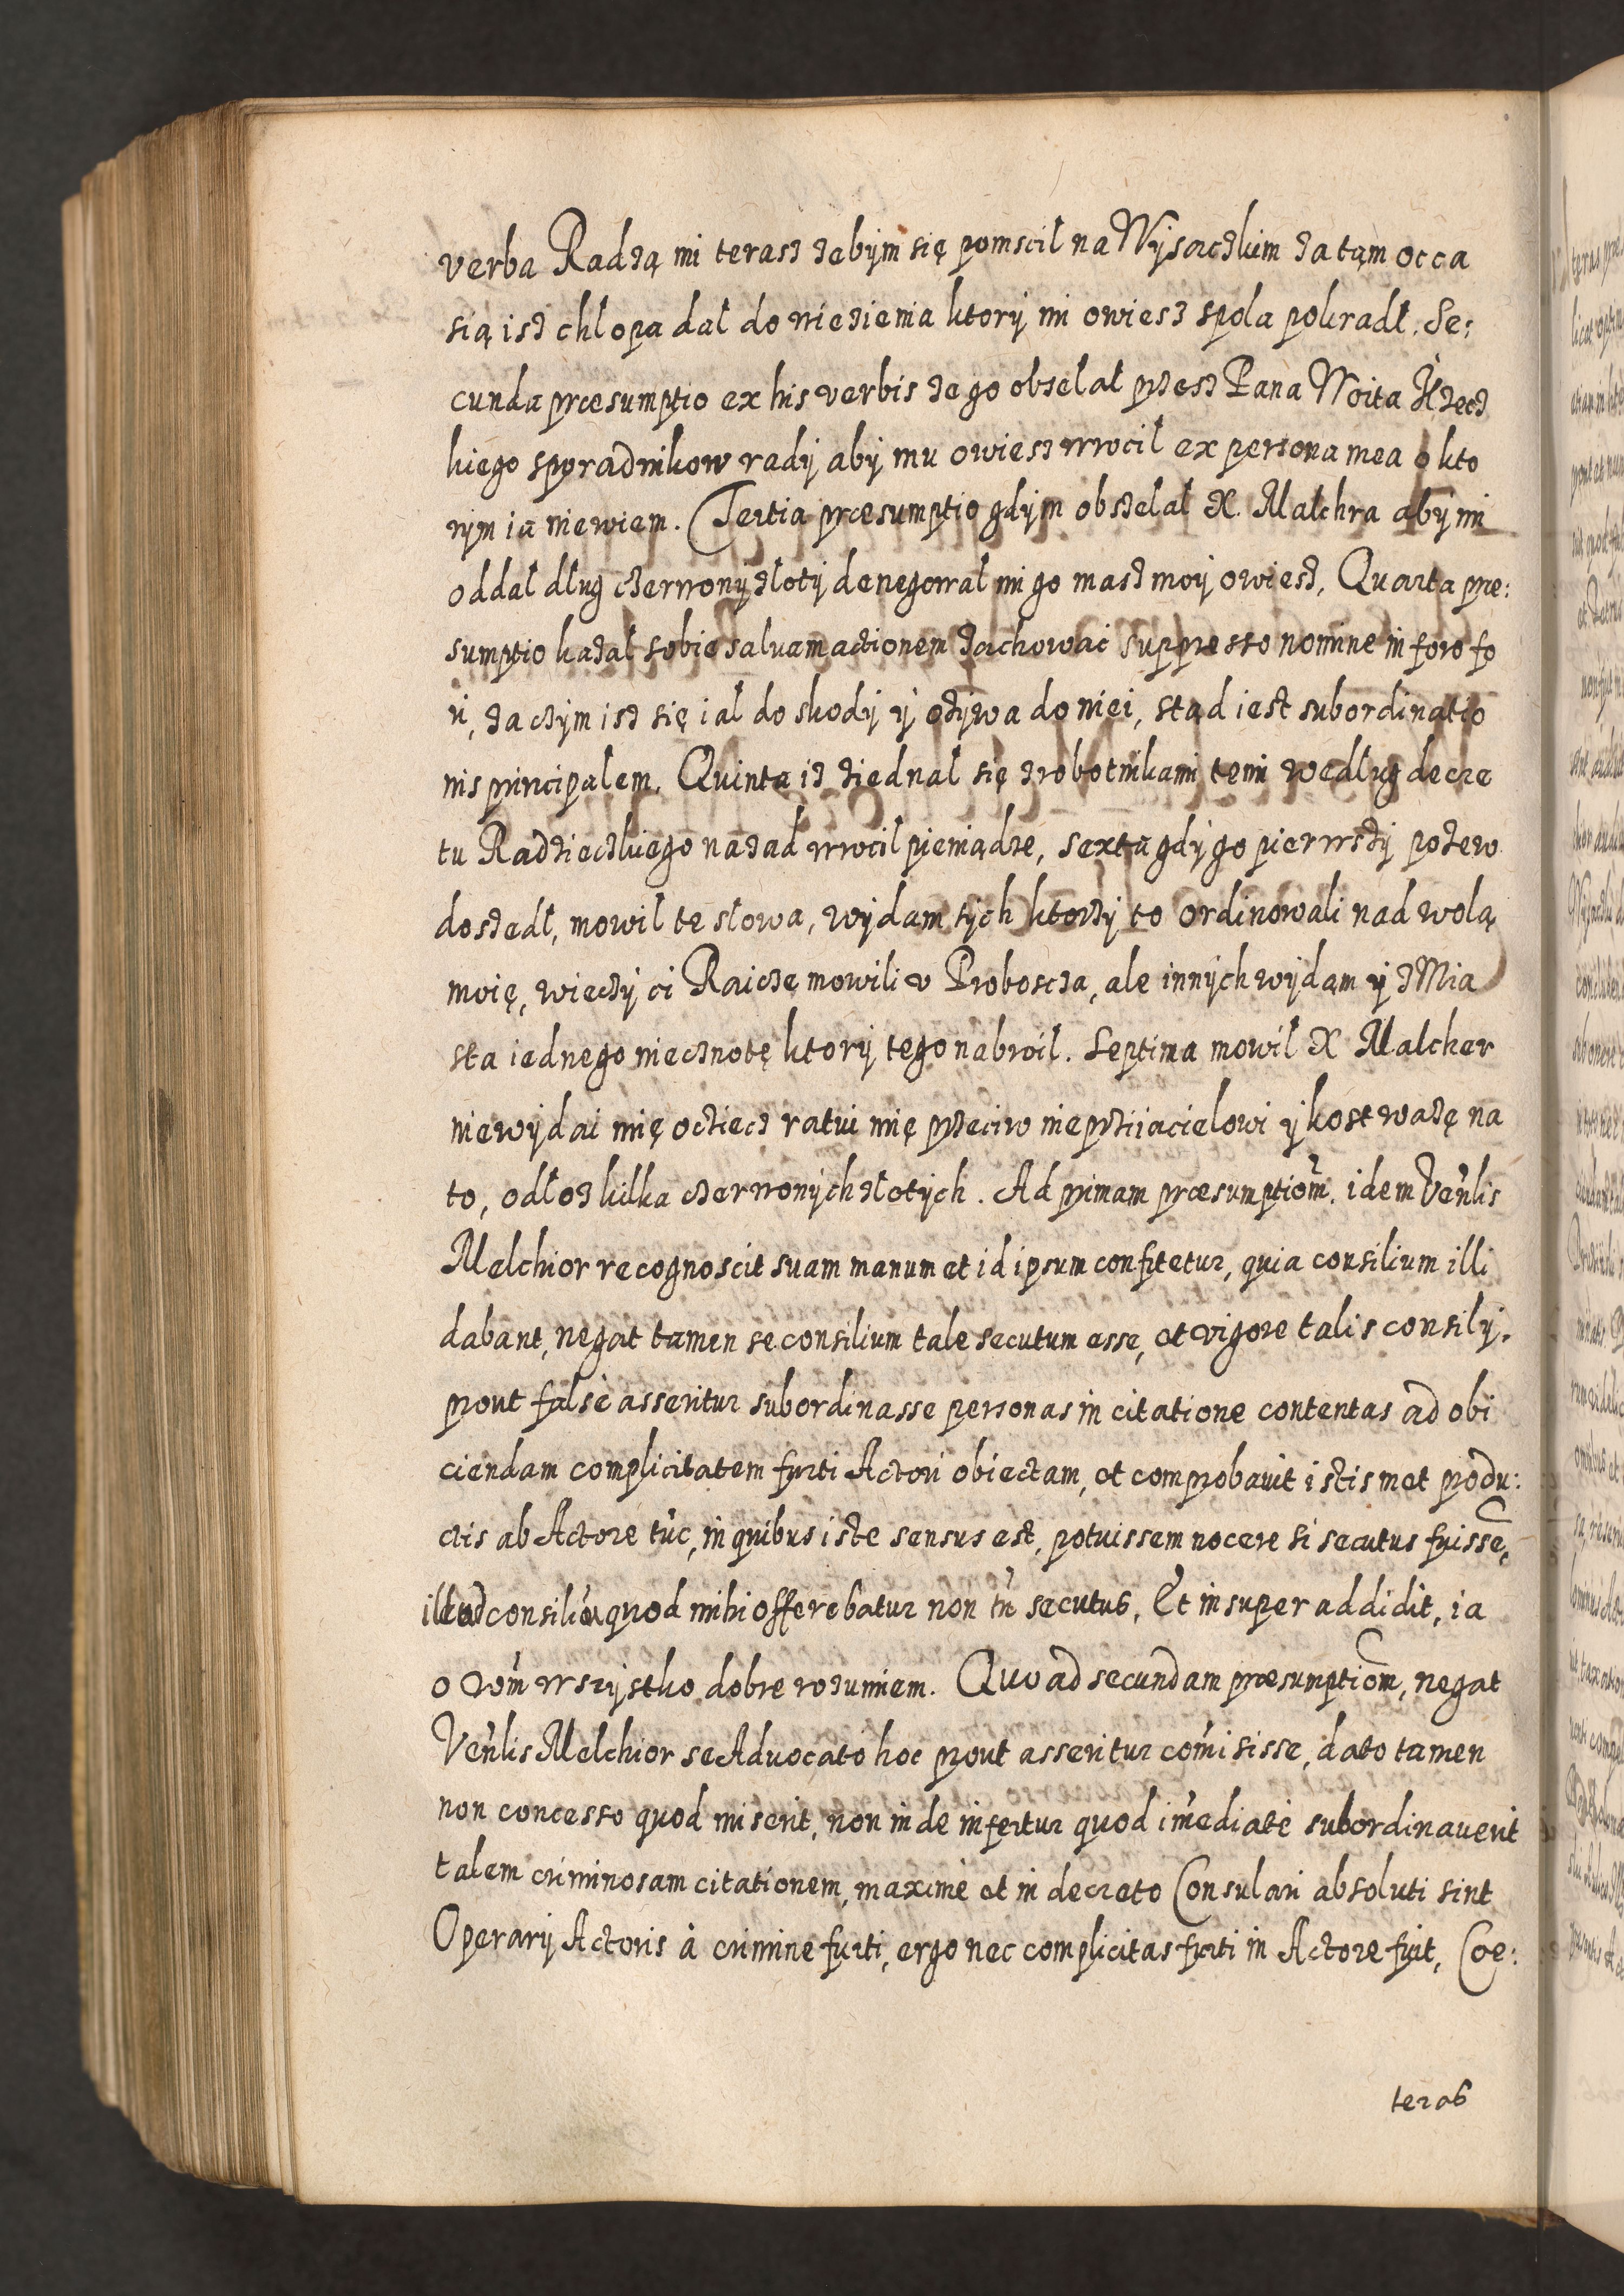 verba Radzą mi terasz zebym się pomscił na Wysoczkim za tąm occa
sią isz chłopa dał do więzienia ktory mi owiesz spola pokradł. Se:
cunda præsumptio ex his verbis ze go obsełał przesz Pana Woita
kiego sporadnikow rady aby mu owiesz wrocił ex persona mea o kto
rym ia niewiem. Tertia præsumptio gdym obszelal X. Malchra aby mi
oddał dług czerwony złoty denegował mi go masz moy owiesz, Quarta præ:
sumptio kazał sobie saluam actionem zachować suppresso nomine in foro fo
ri, za czym isz się iał do skody y ozywa do niei, stąd iest subordinatio
nis principalem. Quinta iz ziednał się z robotnikami temi według decre
tu Radzieczkiego nazad wrocił pieniądze, sexta gdy go pierwszy pozew
doszedł, mowił te słowa, wydam tych ktorzy to ordinowali nad wolą
moię, wieczy ci Raicze mowili v Proboscza, ale innych wydam y z Mia
sta iednego niecznotę ktory tego nabroił. Septima mowił X Malcher
niewydai mię ocziecz ratui mię przeciw nieprziiacielowi y koszt wazę na
to, odłoz kilka czerwonych złotych. Ad primam præsumptiom̃. idem Ven̄lis
Melchior recognoscit suam manum et id ipsum confitetur, quia consilium illi
dabant, negat tamen se consilium tale secutum esse, et vigore talis consilÿ.
prout falsè asseritur subordinasse personas in citatione contentas ad obi
ciendam complicitatem furti Actori obiectam, et comprobauit istismet produ:
ctis ab Actore tūc, in quibus iste sensus est, potuissem nocere si secutus fuisse,
illud consiliū quod mihi offerebatur non tn̄ secutus, Et insuper addidit, ia
o wszystko dobre rozumiem. Quo ad secundam præsumptiom̃, negat
Ven̄lis Melchior se Aduocato hoc prout asseritur com̄isisse, dato tamen
non concesso quod miserit, non inde infertur quod im̄ediatè subordinauerit
talem criminosam citationem, maximè et in decreto Consulari absoluti sint
Operarÿ Actoris à crimine furti, ergo nec complicitas furti in Actore fuit, Cæ:
teras